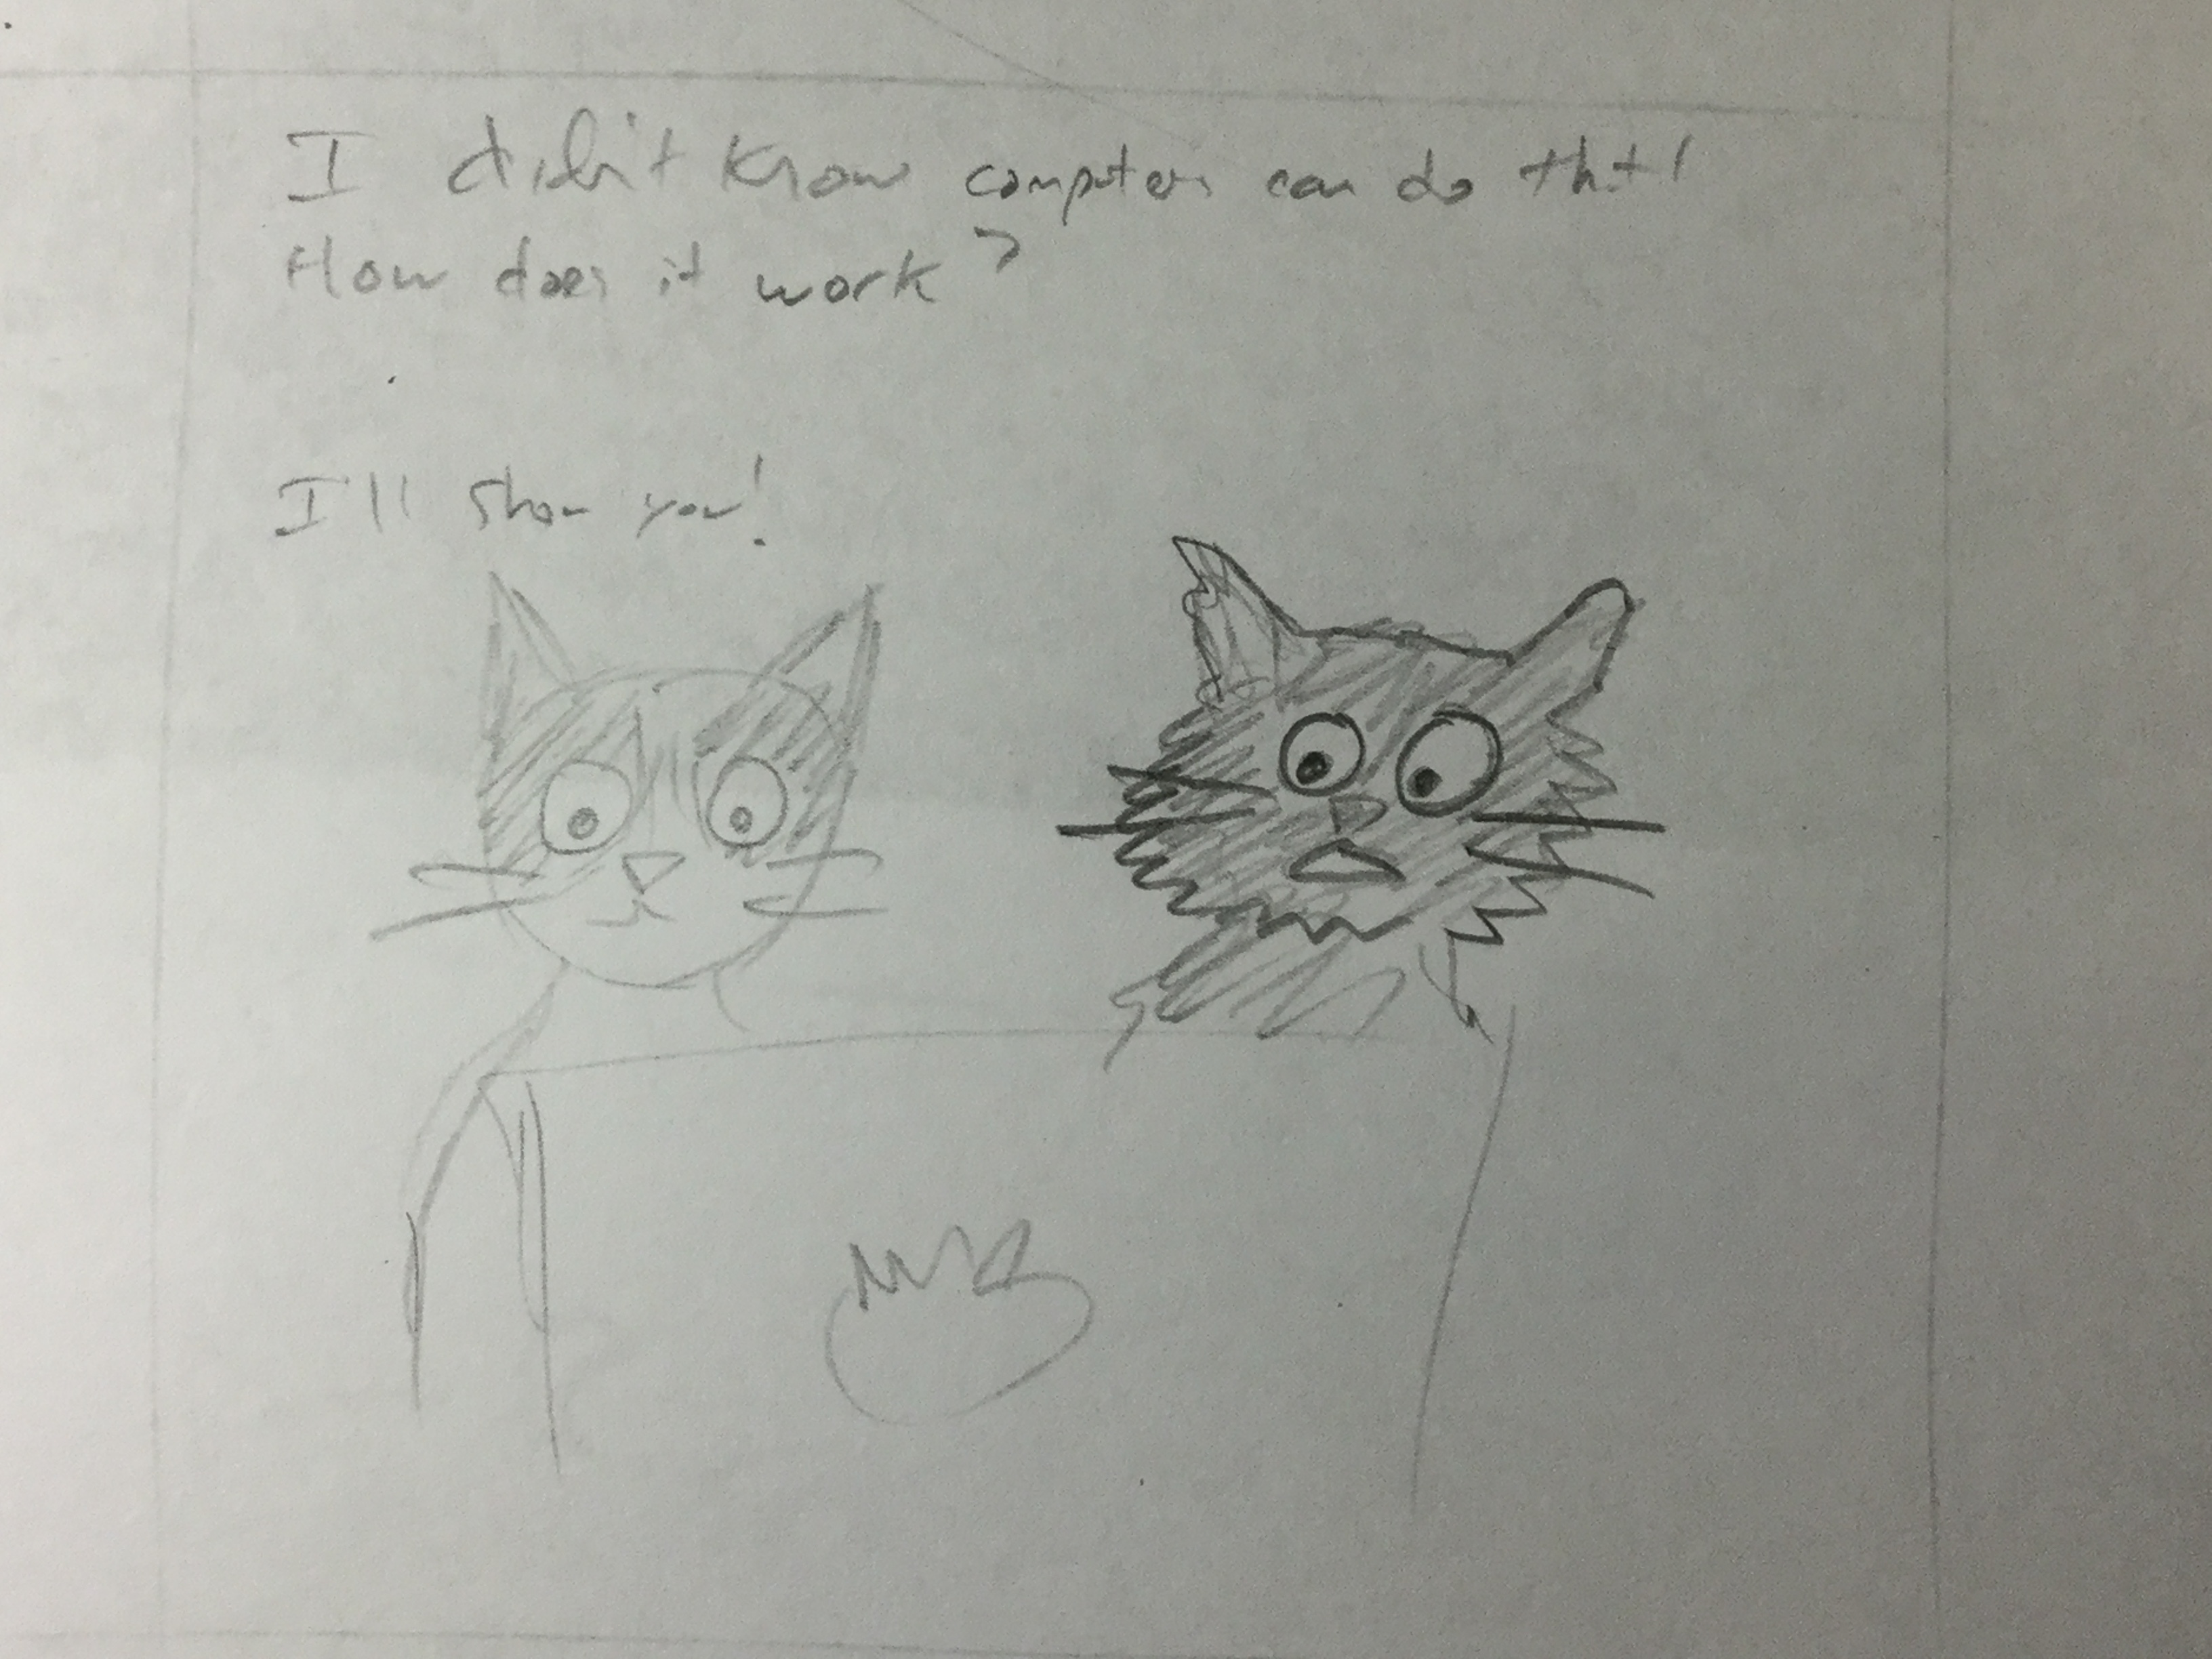 I didn't know computers can do that!
How does it work?
I'll show you!